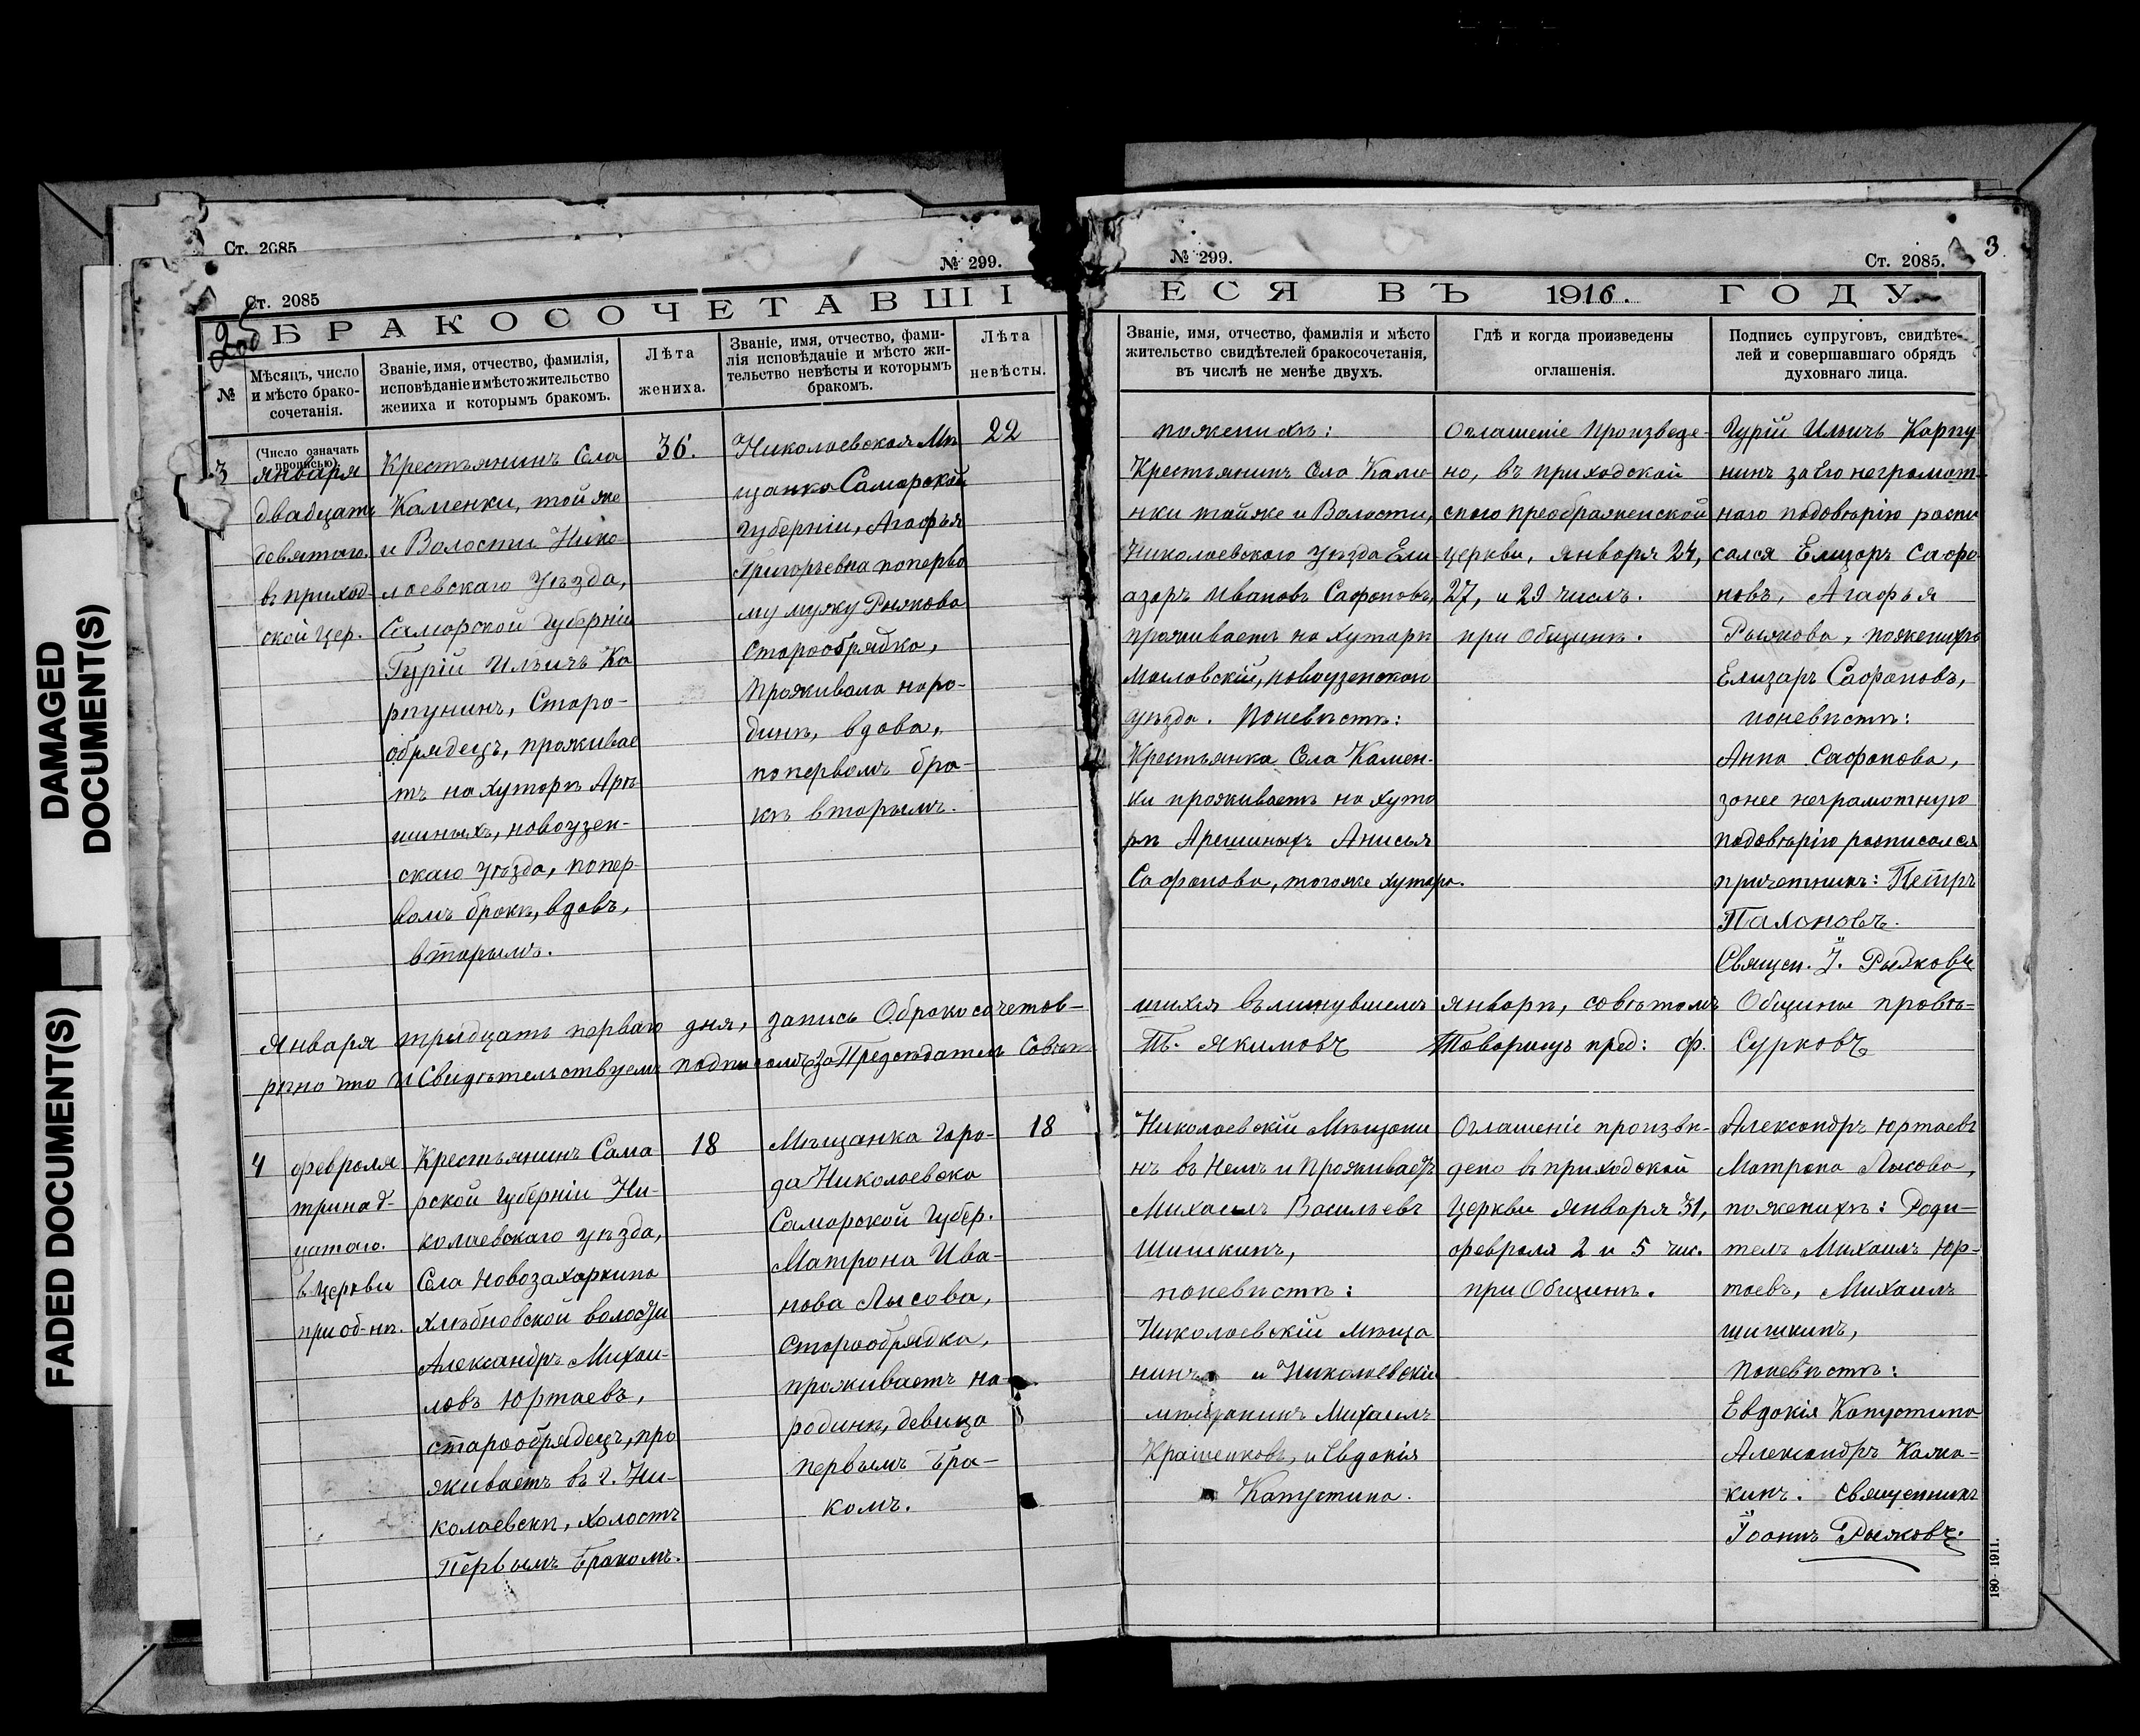 DAMAGED
DOCUMENT(S)
FADED DOCUMENT(S)
Ст. 2085
№ 299.
Ст. 2085
БРАКОСОЧЕТАВШІ
№
Мѣсяцъ, число
и мѣсто брако-
сочетанія.
Званіе, имя, отчество, фамилія,
исповѣданіе и мѣсто жительство
жениха и которымъ бракомъ.
Лѣта
жениха.
Званіе, имя, отчество, фами-
лія исповѣданіе и мѣсто жи-
тельство невѣсты и которымъ
бракомъ.
Лѣта
невѣсты.
(Число означать
прописью)
3
Января
двадцать
девятаго.
въ приход-
ской цер.
Крестьянинъ Села
Каменки, той же
и Волости Нико-
лаевскаго Уѣзда,
Самарской Губерніи
Гурій Ильичъ Ка
рпунинъ, Старо-
обрядецъ, проживае
тъ на хуторѣ Аре
шиныхъ, новоузен-
скаго Уѣзда, попер-
вомъ бракѣ, вдовъ,
вторымъ.
36.
Николаевская Мѣ
щанка Самарской
Губерніи, Агафья
Григорьевна поперво
му мужу Рыжкова
Старообрядка,
Проживала наро-
динѣ, вдова,
попервомъ бра-
кѣ вторымъ.
22
Января тридцать перваго дня, запись О бракосочетав-
рено что и Свидѣтельствуемъ подписомъ за Предсѣдатель Совѣта
4
февраля
тринад-
цатаго.
въ Церкви
при об-нѣ.
Крестьянинъ Сама
рской Губерніи Ни-
колаевскаго уѣзда,
Села Новозахаркина
хлѣбновской волости
Александръ Михаи-
ловъ Юртаевъ,
старообрядецъ, про
живаетъ въ г. Ни-
колаевскѣ, холостъ
Первымъ Бракомъ.
18
Мѣщанка Горо-
да Николаевска
Самарской Губер.
Матрона Ива-
нова Лысова,
Старообрядка,
проживаетъ на
родинѣ, девица
первымъ Бра-
комъ.
18
№ 299.
Ст. 2085.
3
ЕСЯ ВЪ 1916. ГОДУ.
Званіе, имя, отчество, фамилія и мѣсто
жительство свидѣтелей бракосочетанія,
въ числѣ не менѣе двухъ.
Гдѣ и когда произведены
оглашенія.
Подпись супруговъ, свидѣте-
лей и совершавшаго обрядъ
духовнаго лица.
поженихѣ:
Крестьянинъ Села Каме
нки той же и Волости,
Николаевскаго Уѣзда Ели-
азаръ Ивановъ Сафоновъ,
проживаетъ на хуторѣ
Масловскій, новоузенскаго
Уѣзда. Поневѣстѣ:
Крестьянка Села Камен-
ки проживаетъ на хуто
рѣ Арешиныхъ Анисья
Сафонова, того же хутора.
Оглашеніе Произведе-
но, въ приходской
спасо преображенской
церкви, января 24,
27, и 29 числъ.
при Общинѣ.
Гурій Ильичъ Карпу-
нинъ за Его неграмот-
наго подовѣрію распи
сался Елизаръ Сафо
новъ, Агафья
Рыжкова, поженихѣ
Елизаръ Сафоновъ,
поневѣстѣ:
Анна Сафонова,
занее неграмотную
подовѣрію расписался
причетникъ: Петръ
Священ. І. Рыжковъ
шихся въ минувшемъ январѣ, совѣтомъ Общины провѣ-
Якимовъ Товарищъ пред: Ф. Сурковъ
Николаевскій Мѣщани
нъ въ Немъ и Проживаетъ
Михаилъ Васильевъ
Шишкинъ,
поневѣстѣ:
Николаевскій Мѣща
нинъ и Николаевскій
мѣщанинъ Михаилъ
Крашенковъ, и Евдокія
Капустина.
Оглашеніе произвѣ-
дено въ приходской
Церкви Января 31,
февраля 2 и 5 чис.
при Общинѣ.
Александръ Юртаевъ
Матрона Лысова,
поженихѣ: Роди-
тель Михаилъ Юр-
таевъ, Михаилъ
шишкинъ,
Поневѣстѣ:
Евдокія Капустина
Священникъ
Іоаннъ Рыжковъ.